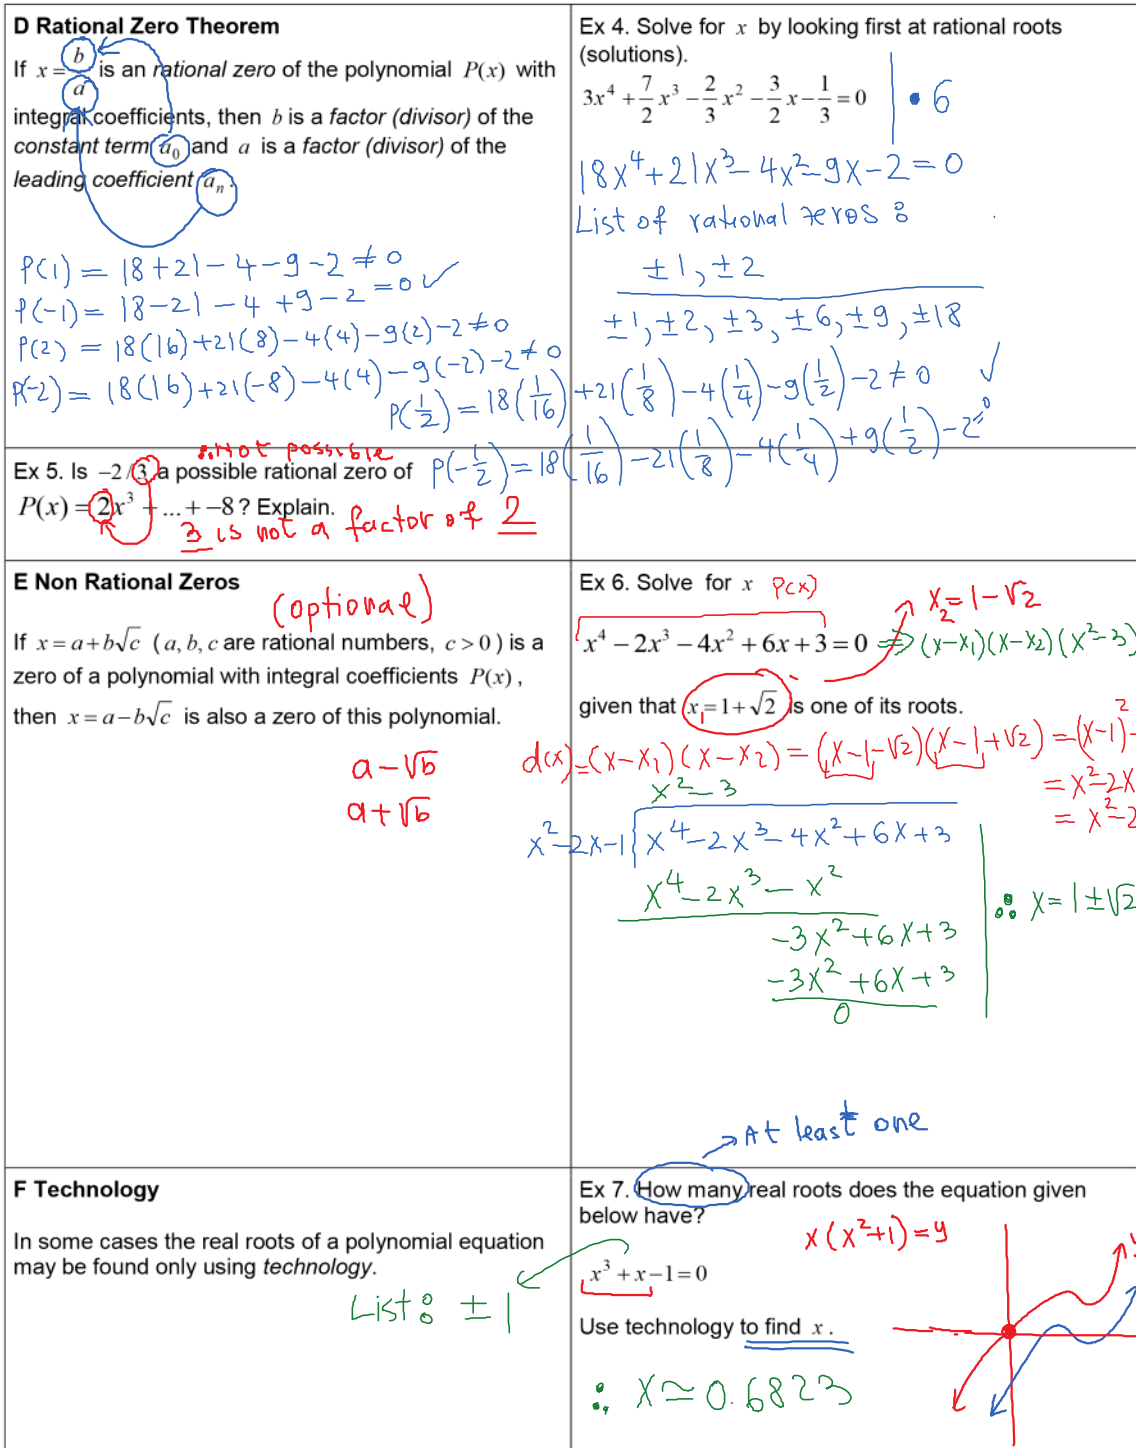 D Rational Zero Theorem
If x = b/a is an rational zero of the polynomial P(x) with
integral coefficients, then b is a factor (divisor) of the
constant term a₀ and a is a factor (divisor) of the
leading coefficient aₙ.
P(1) = 18+21-4-9-2 ≠ 0
P(-1) = 18-21-4+9-2 = 0 ✓
P(2) = 18(16)+21(8)-4(4)-9(2)-2 ≠ 0
P(-2) = 18(16)+21(-8)-4(4)-9(-2)-2 ≠ 0
P(1/2) = 18(1/16)+21(1/8)-4(1/4)-9(1/2)-2 ≠ 0 ✓
P(-1/2) = 18(1/16)-21(1/8)-4(1/4)+9(1/2)-2 = 0
Ex 4. Solve for x by looking first at rational roots
(solutions).
3x⁴ + 7/2 x³ - 2/3 x² - 3/2 x - 1/3 = 0 | • 6
18x⁴+21x³-4x²-9x-2=0
List of rational zeros :
±1, ±2
±1, ±2, ±3, ±6, ±9, ±18
∴ Not possible
Ex 5. Is -2/3 a possible rational zero of
P(x) = 2x³ + ... + -8? Explain.
3 is not a factor of 2
E Non Rational Zeros
(optional)
If x = a + b√c (a, b, c are rational numbers, c > 0) is a
zero of a polynomial with integral coefficients P(x),
then x = a - b√c is also a zero of this polynomial.
a-√b
a+√b
Ex 6. Solve for x P(x)
x₂ = 1-√2
x⁴ - 2x³ - 4x² + 6x + 3 = 0 ⇒ (x-x₁)(x-x₂)(x²-3)
given that x₁ = 1 + √2 is one of its roots.
d(x) = (x-x₁)(x-x₂) = (x-1-√2)(x-1+√2) = (x-1)²-
= x²-2x
= x²-2
x²-3
x²-2x-1 x⁴-2x³-4x²+6x+3
x⁴-2x³-x²
∴ x = 1±√2
-3x²+6x+3
-3x²+6x+3
0
At least one
F Technology
In some cases the real roots of a polynomial equation
may be found only using technology.
List: ±1
Ex 7. How many real roots does the equation given
below have?
x(x²+1) = y
x³ + x - 1 = 0
Use technology to find x.
∴ x ≃ 0.6823